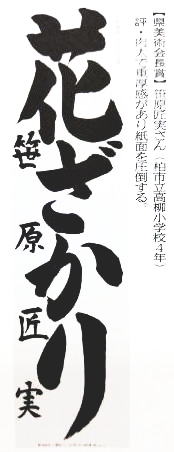 【県美術会長賞】笹原匠実さん（柏市立高柳小学校４年）
評・肉太で重厚感があり紙面を圧倒する。
花ざかり
笹原匠実